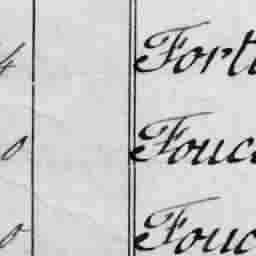 4 Fort
0 Fouc
0 Fouc